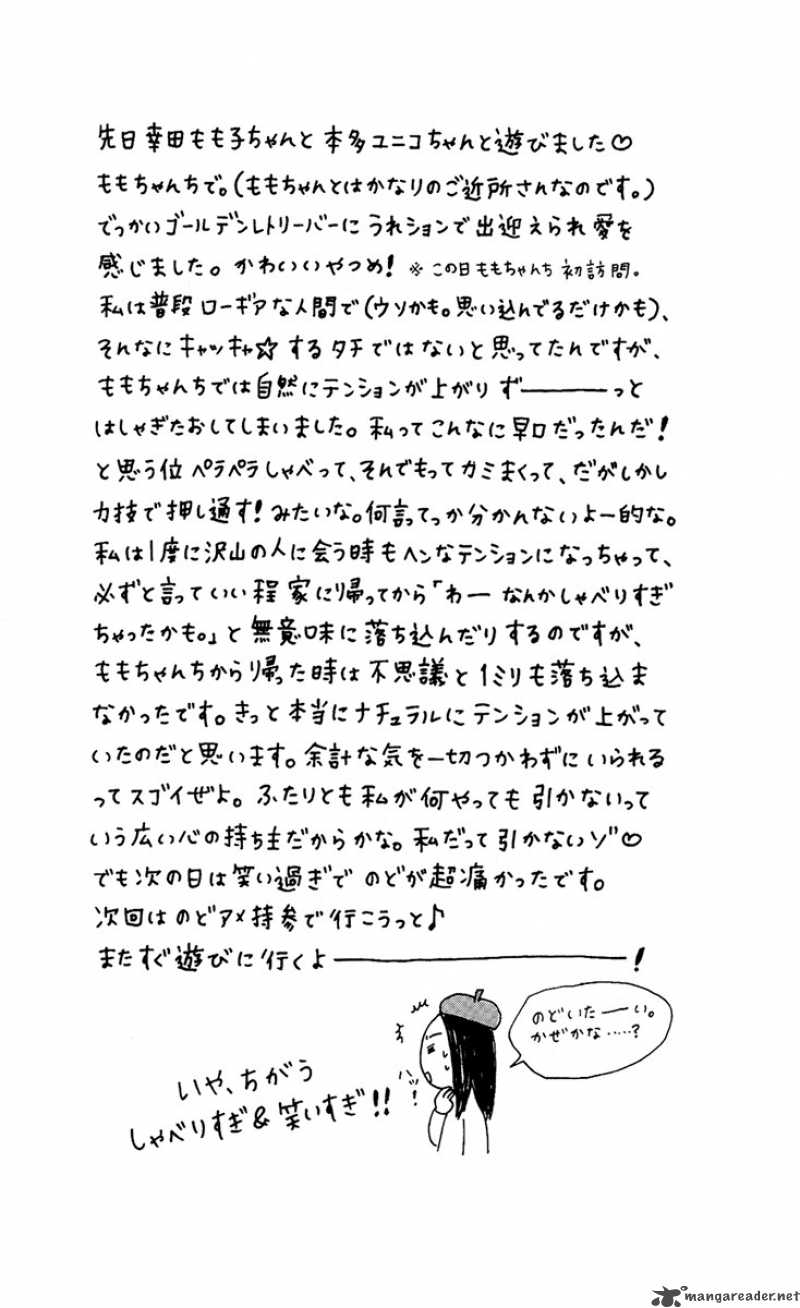 先日幸田もも子ちゃんと本多ユニコちゃんと遊びました♡
ももちゃんちで。(ももちゃんとはかなりのご近所さんなのです。)
でっかいゴールデンレトリーバーにうれションで出迎えられ愛を
感じました。かわいいやつめ! ※この日ももちゃんち初訪問。
私は普段ローギアな人間で(ウソかも。思い込んでるだけかも)、
そんなにキャッキャ☆するタチではないと思ってたんですが、
ももちゃんちでは自然にテンションが上がりずーーーーっと
はしゃぎたおしてしまいました。私ってこんなに早口だったんだ!
と思う位ペラペラしゃべって、それでもってカミまくって、だがしかし
力技で押し通す!みたいな。何言ってっか分かんないよー的な。
私は1度に沢山の人に会う時もヘンなテンションになっちゃって、
必ずと言っていい程家に帰ってから「わー なんかしゃべりすぎ
ちゃったかも。」と無意味に落ち込んだりするのですが、
ももちゃんちから帰った時は不思議と1ミリも落ち込ま
なかったです。きっと本当にナチュラルにテンションが上がって
いたのだと思います。余計な気を一切つかわずにいられる
ってスゴイぜよ。ふたりとも私が何やっても引かないって
いう広い心の持ち主だからかな。私だって引かないゾ♡
でも次の日は笑い過ぎでのどが超痛かったです。
次回はのどアメ持参で行こうっと♪
またすぐ遊びに行くよーーーーーーーー!
のどいたーい。
かぜかな……?
ハッ!
いや、ちがう
しゃべりすぎ&笑いすぎ!!
mangareader.net